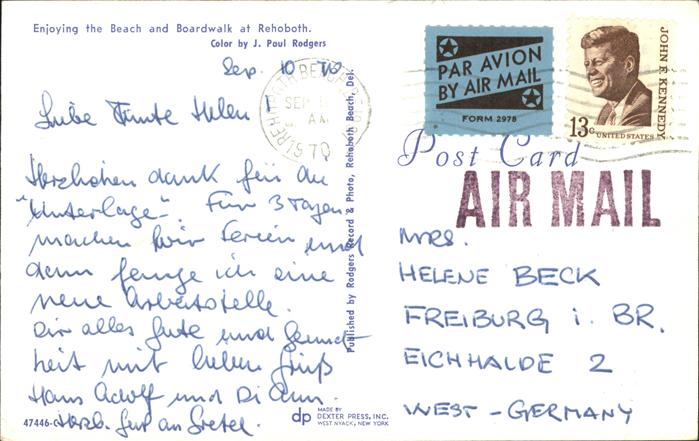 Enjoying the Beach and Boardwalk at Rehoboth.
Color by J. Paul Rodgers
Sep. 10 70
Liebe Tante Helen
Herzlichen dank für die
"Unterlage". Für 3 Tagen
machen wir Ferien und
dann fange ich eine
neue Arbeitsstelle.
Dir alles Gute und Gesund-
heit mit lieben Gruß
Hans Adolf und Di Ann.
Herzl. Gruß an Gretel.
47446-C
Published by Rodgers Record & Photo, Rehoboth Beach, Del.
REHOBOTH BEACH
SEP
AM
1970
PAR AVION
BY AIR MAIL
FORM 2978
JOHN F. KENNEDY
13c UNITED STATES
Post Card
AIR MAIL
MRS.
HELENE BECK
FREIBURG i. BR.
EICHHALDE 2
WEST-GERMANY
dp
MADE BY
DEXTER PRESS, INC.
WEST NYACK, NEW YORK